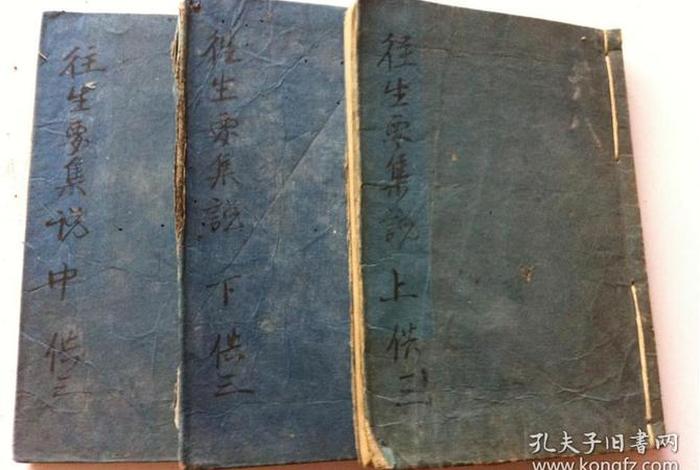 往生要集説 中 供三
往生要集説 下 供三
往生要集説 上 供三
孔夫子旧书网
www.kongfz.com